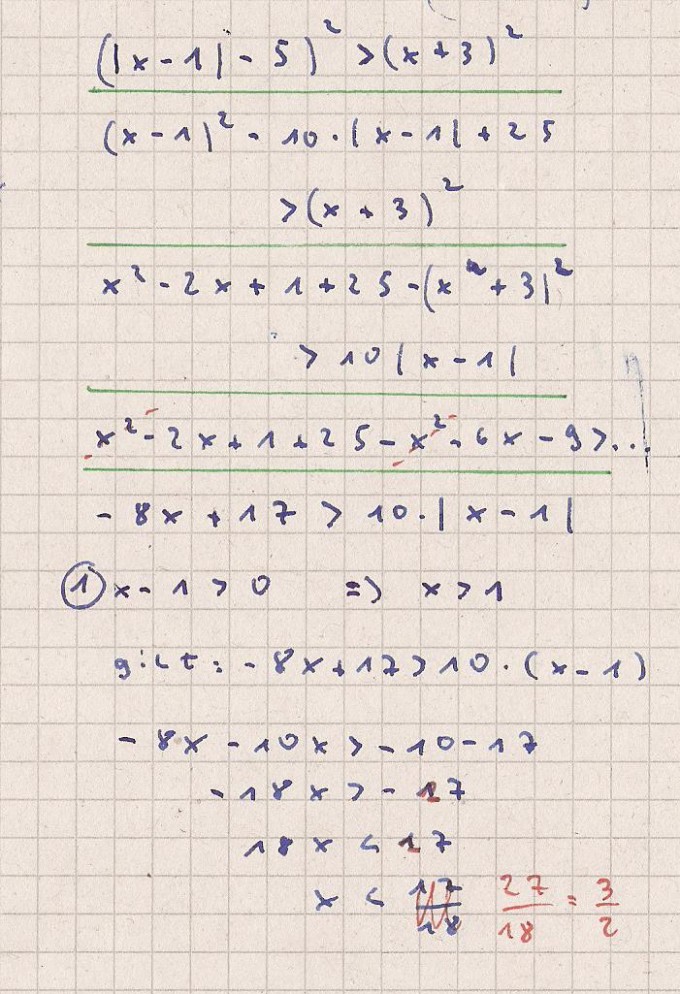 (|x-1| - 5)² > (x+3)²
(x-1)² - 10·|x-1| + 25
> (x+3)²
x² - 2x + 1 + 25 - (x + 3)²
> 10|x-1|
x² - 2x + 1 + 25 - x² - 6x - 9 > ...
- 8x + 17 > 10·|x-1|
① x - 1 > 0 => x > 1
gilt: - 8x + 17 > 10·(x-1)
- 8x - 10x > - 10 - 17
- 18x > - 27
18x < 27
x < 17/18 27/18 = 3/2